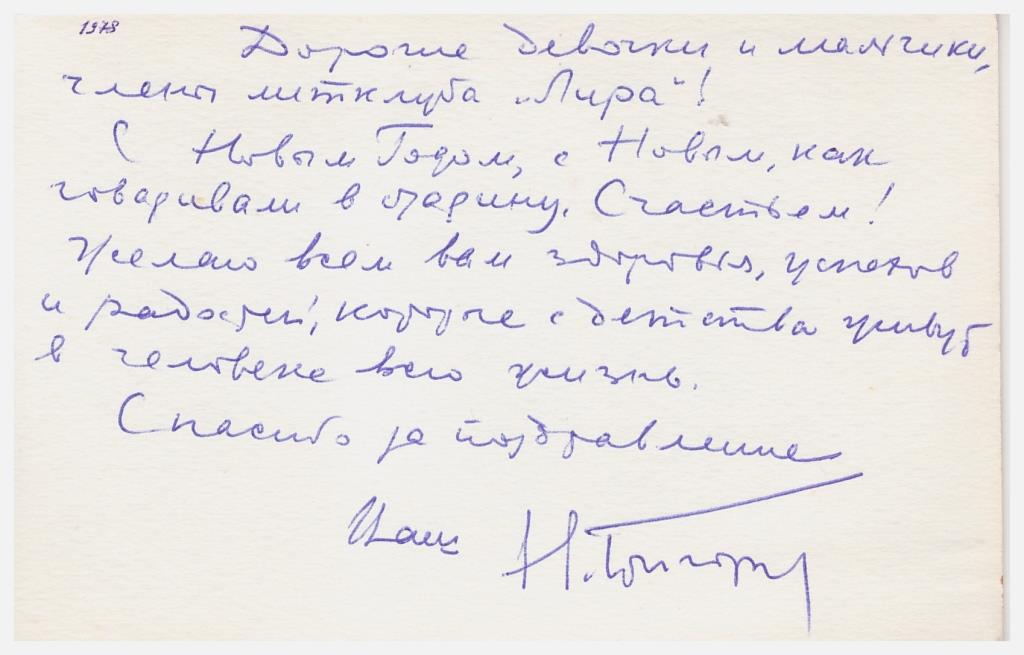 1978
Дорогие девочки и мальчики,
члены литклуба „Лира“!
С Новым Годом, с Новым, как
говаривали в старину, Счастьем!
Желаю всем вам здоровья, успехов
и радостей, которые с детства живут
в человеке всю жизнь.
Спасибо за поздравление
Ваш Н.